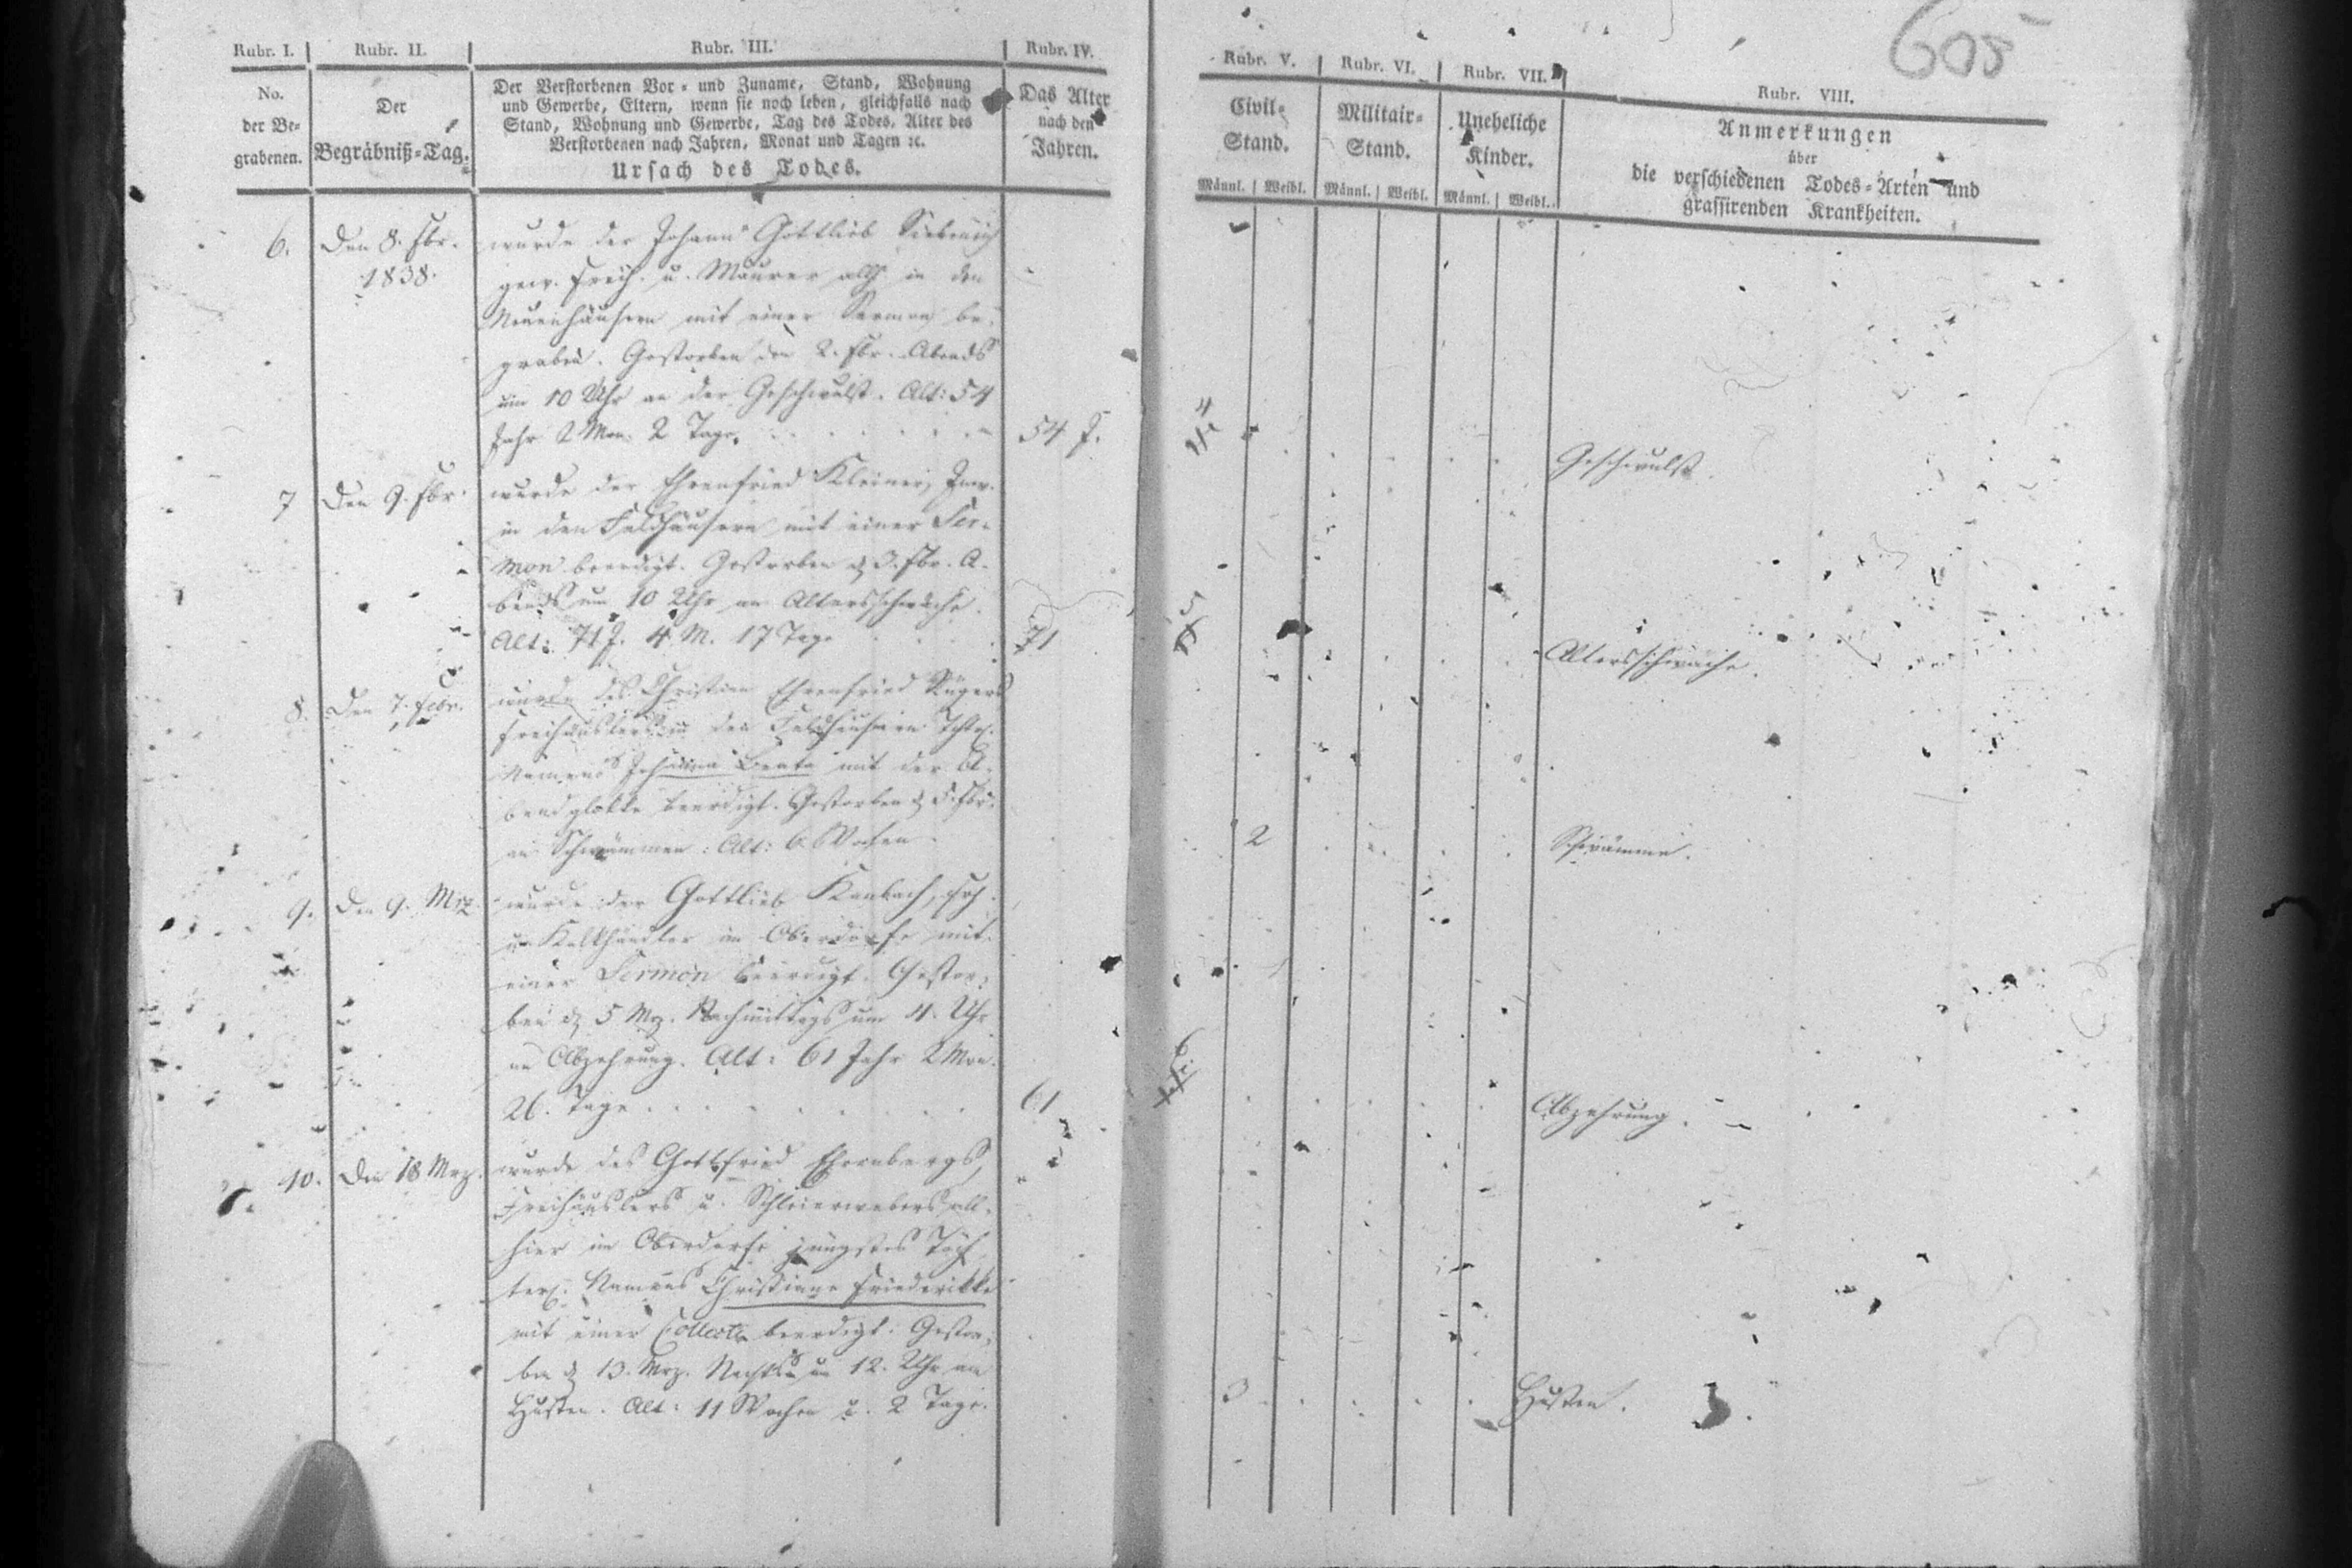 605
Rubr. I.
Rubr. II.
Rubr. III.
Rubr. IV.
Rubr. V.
Rubr. VI.
Rubr. VII.
Rubr. VIII.
No.
der Be-
grabenen.
Der
Begräbniß-Tag.
Der Verstorbenen Vor- und Zuname, Stand, Wohnung
und Gewerbe, Eltern, wenn sie noch leben, gleichfalls nach
Stand, Wohnung und Gewerbe, Tag des Todes, Alter des
Verstorbenen nach Jahren, Monat und Tagen ꝛc.
Ursach des Todes.
Das Alter
nach den
Jahren.
Civil-
Stand.
Militair-
Stand.
Uneheliche
Kinder.
Anmerkungen
über
die verschiedenen Todes-Arten und
grassirenden Krankheiten.
Männl. Weibl. Männl. Weibl. Männl. Weibl.
6. Den 8. Fbr.
1838.
wurde der Johann Gottlieb
gew. Freih. u. Maurer allh. in den
Neuenhäusern mit einer Sermon be-
graben. Gestorben den 2. Fbr. Abends
um 10 Uhr an der Geschwulst. Alt: 54
Jahr 2 Mon. 2 Tage.
54 J.
4
Geschwulst.
7 Den 9. Fbr.
wurde der Ehrenfried Kleiner, Inw.
in den Feldhäusern mit einer Ser-
mon beerdigt. Gestorben d. 3. Fbr. A-
bends um 10 Uhr an Altersschwäche.
Alt: 71 J. 4 M. 17 Tage
71
5
Altersschwäche.
8. Den 7. Febr.
wurde des Christian Ehrenfried Rügers
Freihäuslers in den Feldhäusern
Namens Johanna Beata mit der A-
bendglokke beerdigt. Gestorben d. 5. Fbr.
an Schwämmen: Alt: 6 Wochen.
2
Schwämme.
9. Den 9. Mrz.
wurde der Gottlieb Kambach,
u. Kalkhändler im Oberdorfe mit
einer Sermon beerdigt. Gestor-
ben d. 5 Mrz. Nachmittags um 4. Uhr
an Abzehrung. Alt: 61 Jahr 2 Mon.
26. Tage.
61
6
Abzehrung.
10. Den 18 Mrz.
wurde des Gottfried Ehrenbergs,
Freihäuslers u. Schleierwebers all-
hier im Oberdorfe jüngstes Töch-
terl. Namens Christiane Friederikke
mit einer Collecte beerdigt. Gestor-
ben d. 13. Mrz. Nachts um 12. Uhr am
Husten. Alt: 11 Wochen u. 2 Tage.
3
Husten.